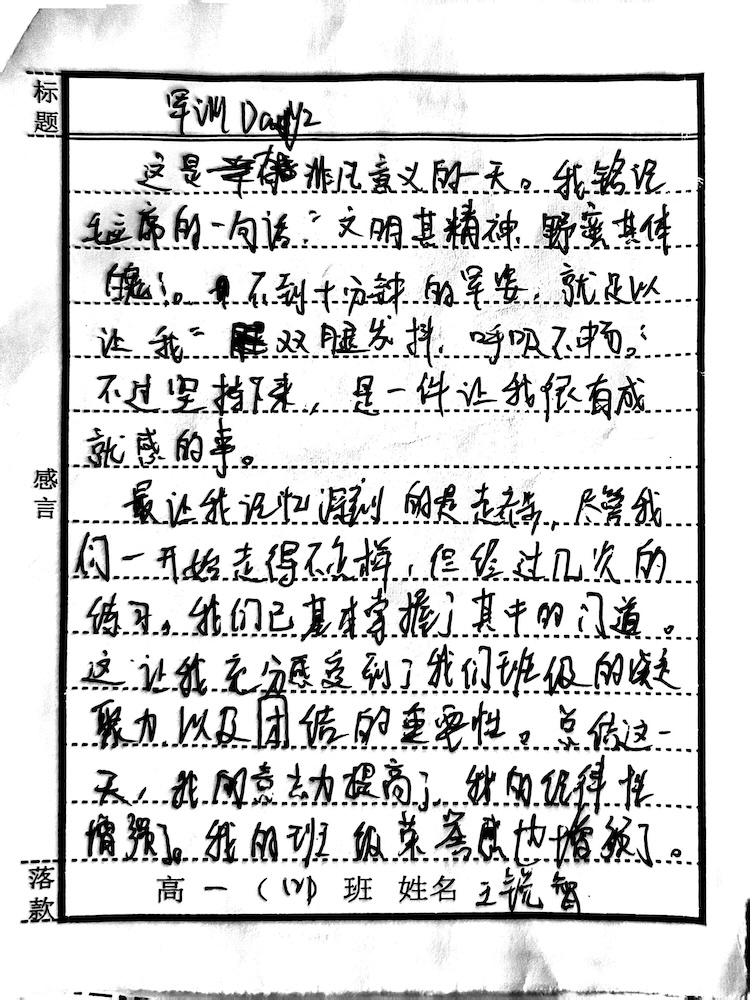 标题
军训 Day2
这是非凡意义的一天。我铭记
毛主席的一句话：“文明其精神，野蛮其体
魄”。不到十分钟的军姿，就足以
让我“双腿发抖，呼吸不畅。”
不过坚持下来，是一件让我很有成
就感的事。
感言
最让我记忆深刻的是走齐步，尽管我
们一开始走得不怎样，但经过几次的
练习，我们已基本掌握了其中的门道。
这让我充分感受到了我们班级的凝
聚力，以及团结的重要性。总结这一
天，我的意志力提高了，我的纪律性
增强了。我的班级荣誉感也增强了。
落款
高一（12）班 姓名 王锐智